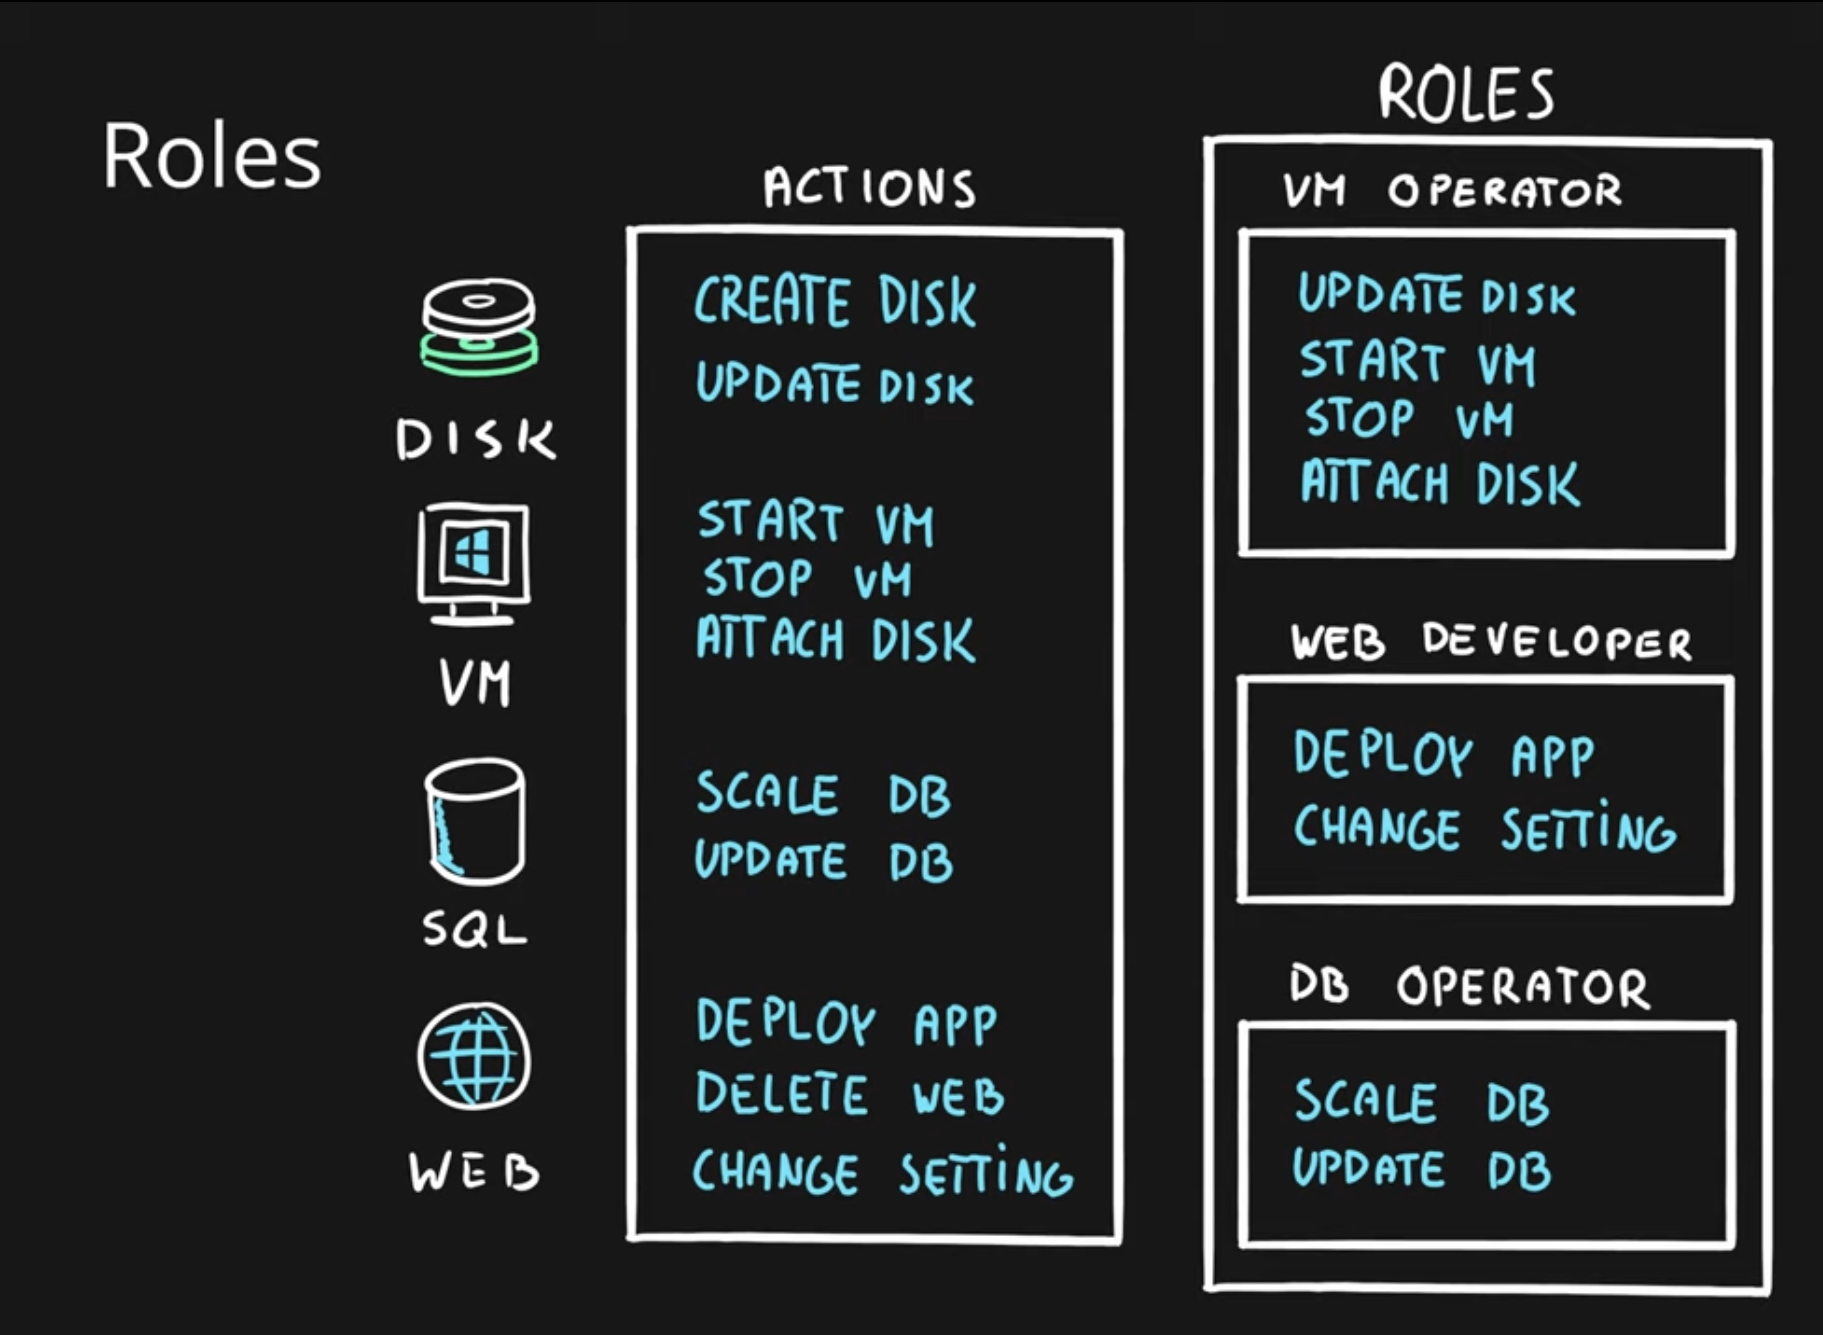 Roles
DISK
VM
SQL
WEB
ACTIONS
CREATE DISK
UPDATE DISK
START VM
STOP VM
ATTACH DISK
SCALE DB
UPDATE DB
DEPLOY APP
DELETE WEB
CHANGE SETTING
ROLES
VM OPERATOR
UPDATE DISK
START VM
STOP VM
ATTACH DISK
WEB DEVELOPER
DEPLOY APP
CHANGE SETTING
DB OPERATOR
SCALE DB
UPDATE DB